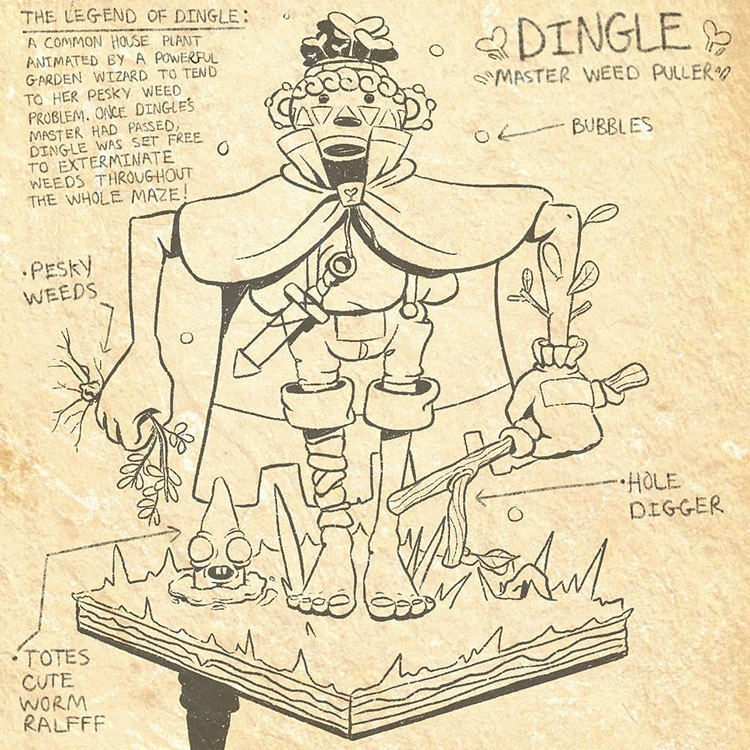 THE LEGEND OF DINGLE:
A COMMON HOUSE PLANT
ANIMATED BY A POWERFUL
GARDEN WIZARD TO TEND
TO HER PESKY WEED
PROBLEM. ONCE DINGLE'S
MASTER HAD PASSED,
DINGLE WAS SET FREE
TO EXTERMINATE
WEEDS THROUGHOUT
THE WHOLE MAZE!
DINGLE
"MASTER WEED PULLER"
BUBBLES
·PESKY
WEEDS
·HOLE
DIGGER
·TOTES
CUTE
WORM
RALFFF